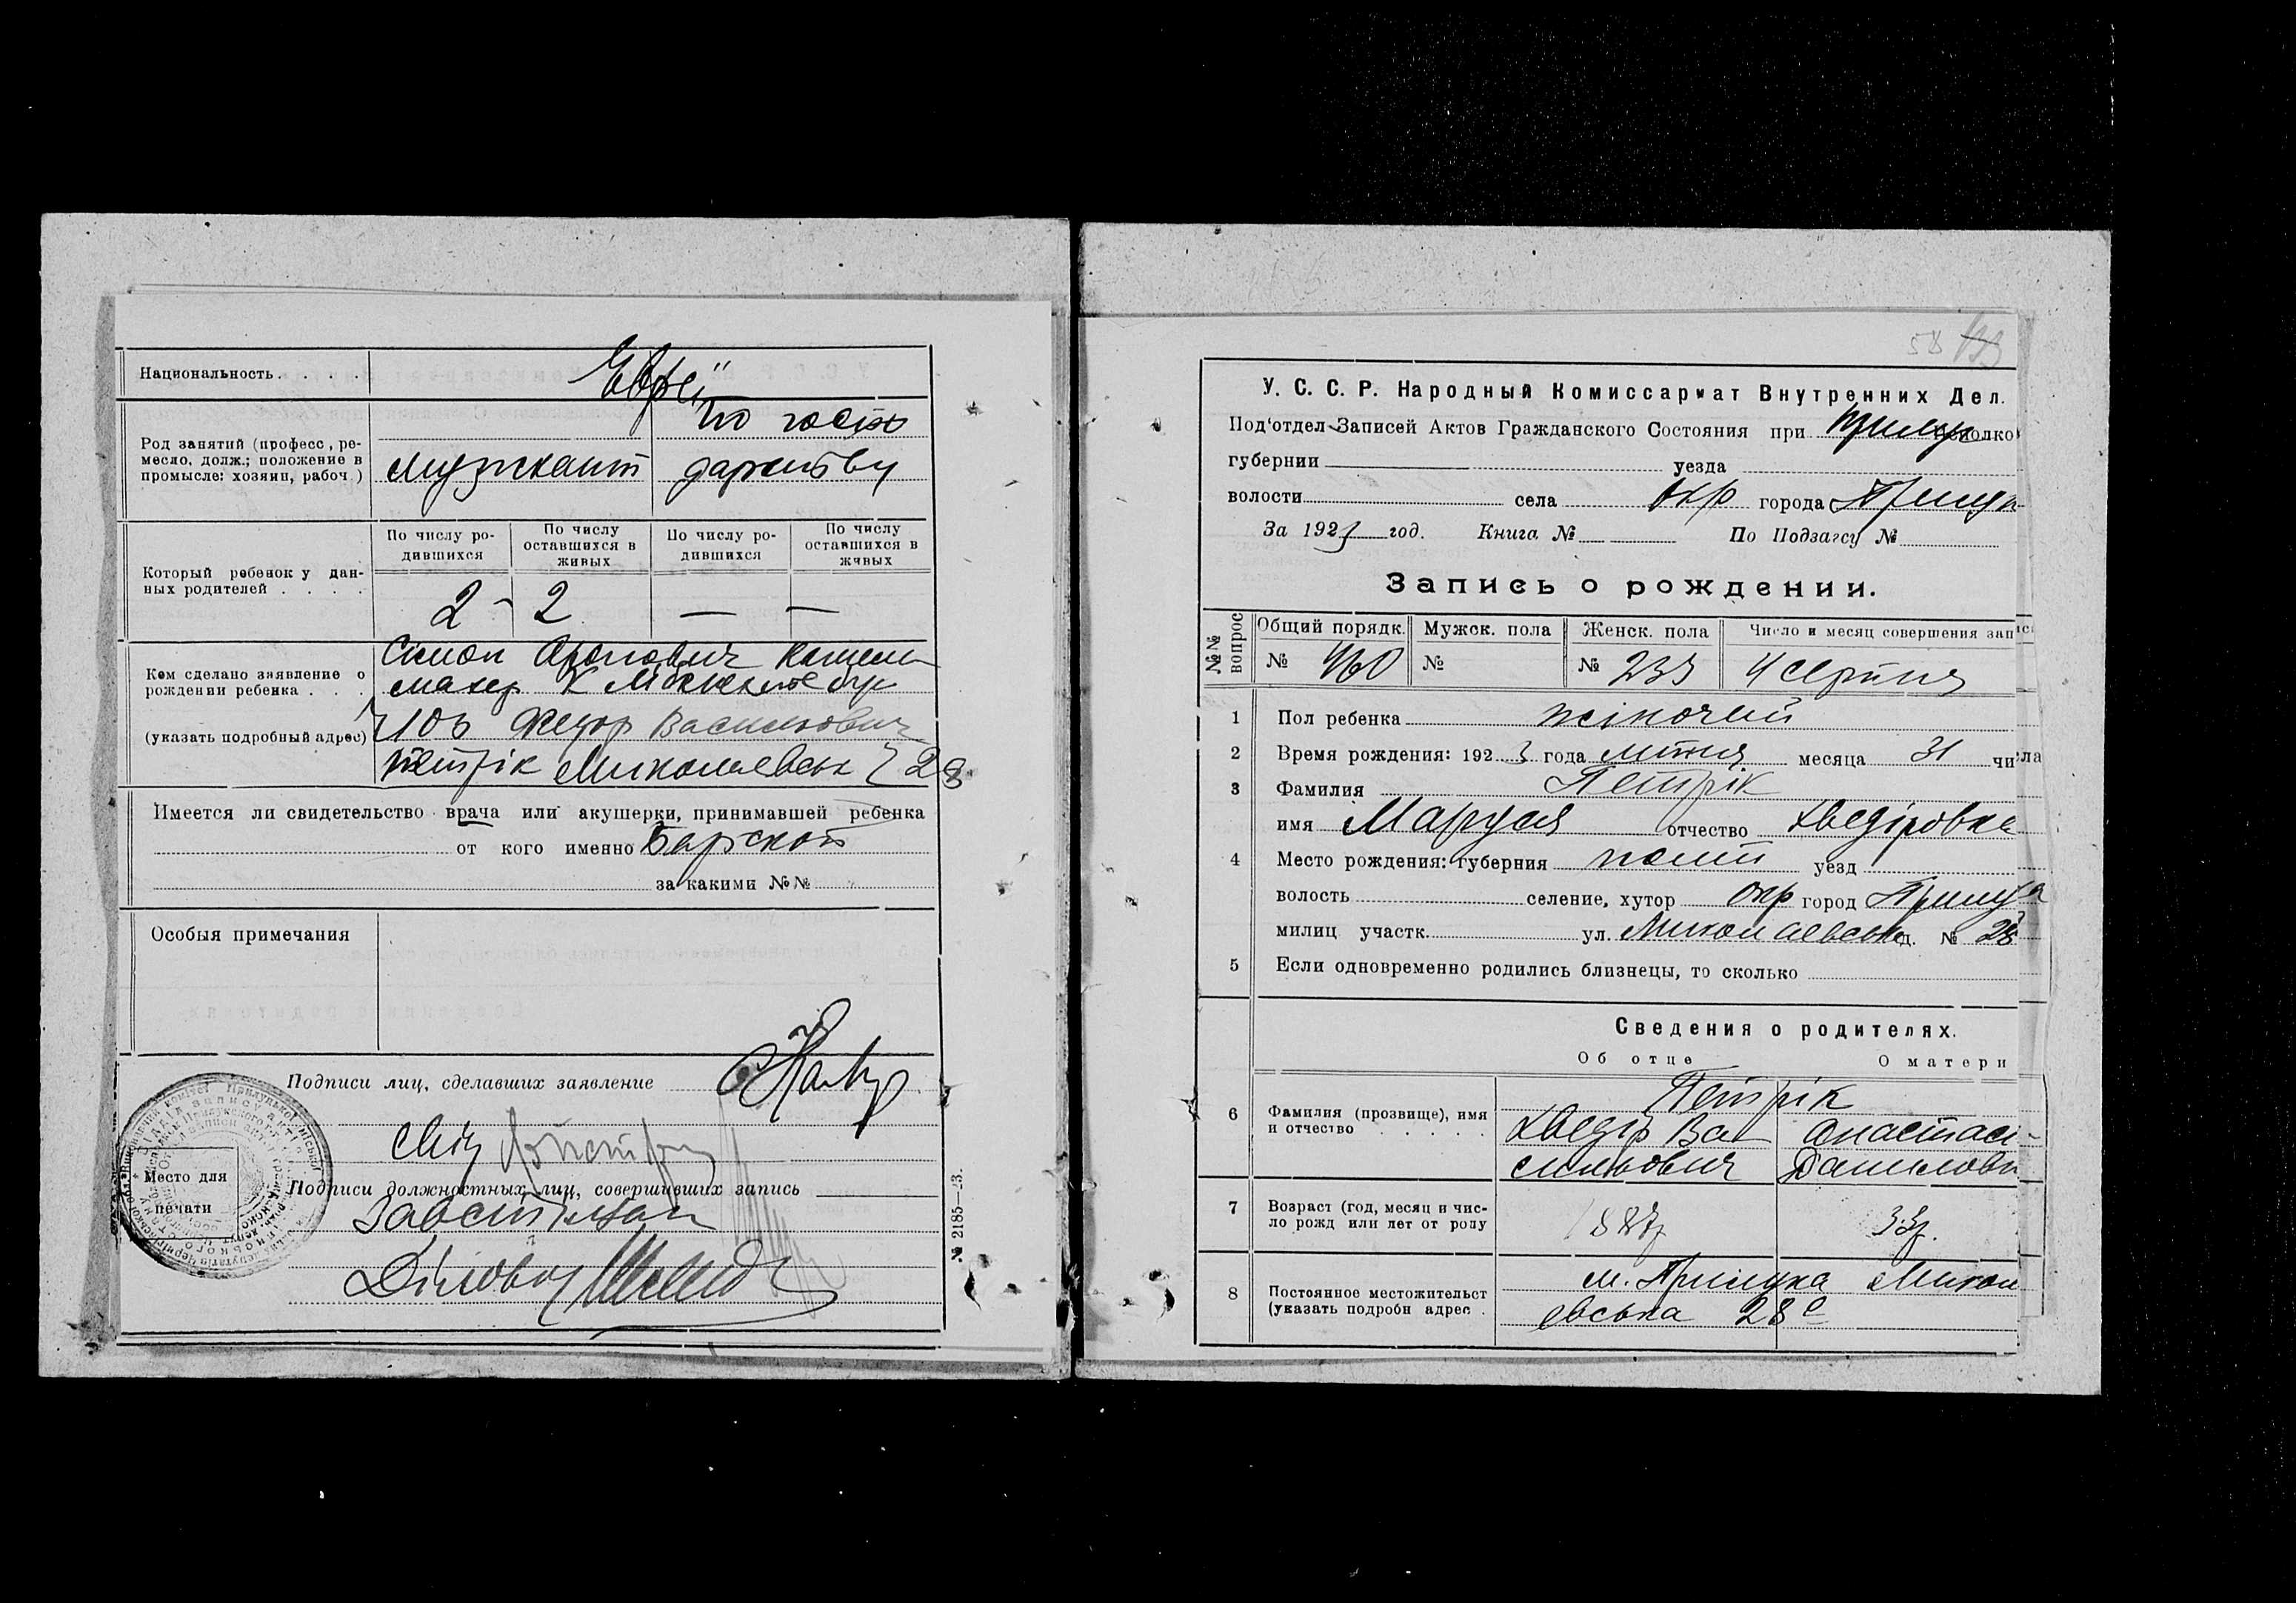 Национальность . . . . Еврей
по госпо
Род занятий (професс, ре-
месло, долж.; положение в
промысле: хозяин, рабоч.)
музикант дарству
По числу ро-
дившихся
По числу
оставшихся в
живых
По числу ро-
дившихся
По числу
оставшихся в
живых
Который ребенок у дан-
ных родителей . . . .
2 - 2 — —
Кем сделано заявление о
рождении ребенка . . .
(указать подробный адрес)
Симон Аронович
103 Федор Василювич
Петрік Миколаевськ 28
Имеется ли свидетельство врача или акушерки, принимавшей ребенка
от кого именно Барской
за какими №№
Особыя примечания
Подписи лиц, сделавших заявление
Подписи должностных лиц, совершивших запись
Место для
печати
Завст
Діловод
№ 2185—3.
58
У. С. С. Р. Народный Комиссариат Внутренних Дел.
Под‘отдел Записей Актов Гражданского Состояния при Прилуц исполко
губернии уезда
волости села окр города Прилук
За 1923 год. Книга № По Подзагсу №
Запись о рождении.
№№ вопрос
Общий порядк. Мужск. пола Женск. пола Число и месяц совершения запис
№ 460 № № 233 4 серпня
1 Пол ребенка жіночий
2 Время рождения: 1923 года липня месяца 31 числа
3 Фамилия Петрік
имя Маруся отчество Хведіровна
4 Место рождения: губерния полт уезд
волость селение, хутор окр город Прилука
милиц участк. ул. Миколаевська д. № 28
5 Если одновременно родились близнецы, то сколько
Сведения о родителях.
Об отце О матери
Петрік
6 Фамилия (прозвище), имя
и отчество . . . . .
Хведір Ва- Анастасі-
сильович Даниловн
7 Возраст (год, месяц и чис-
ло рожд или лет от роду
1887р 33р.
8 Постоянное местожительст
(указать подробн адрес .
м. Прилука Микол
аевська 28